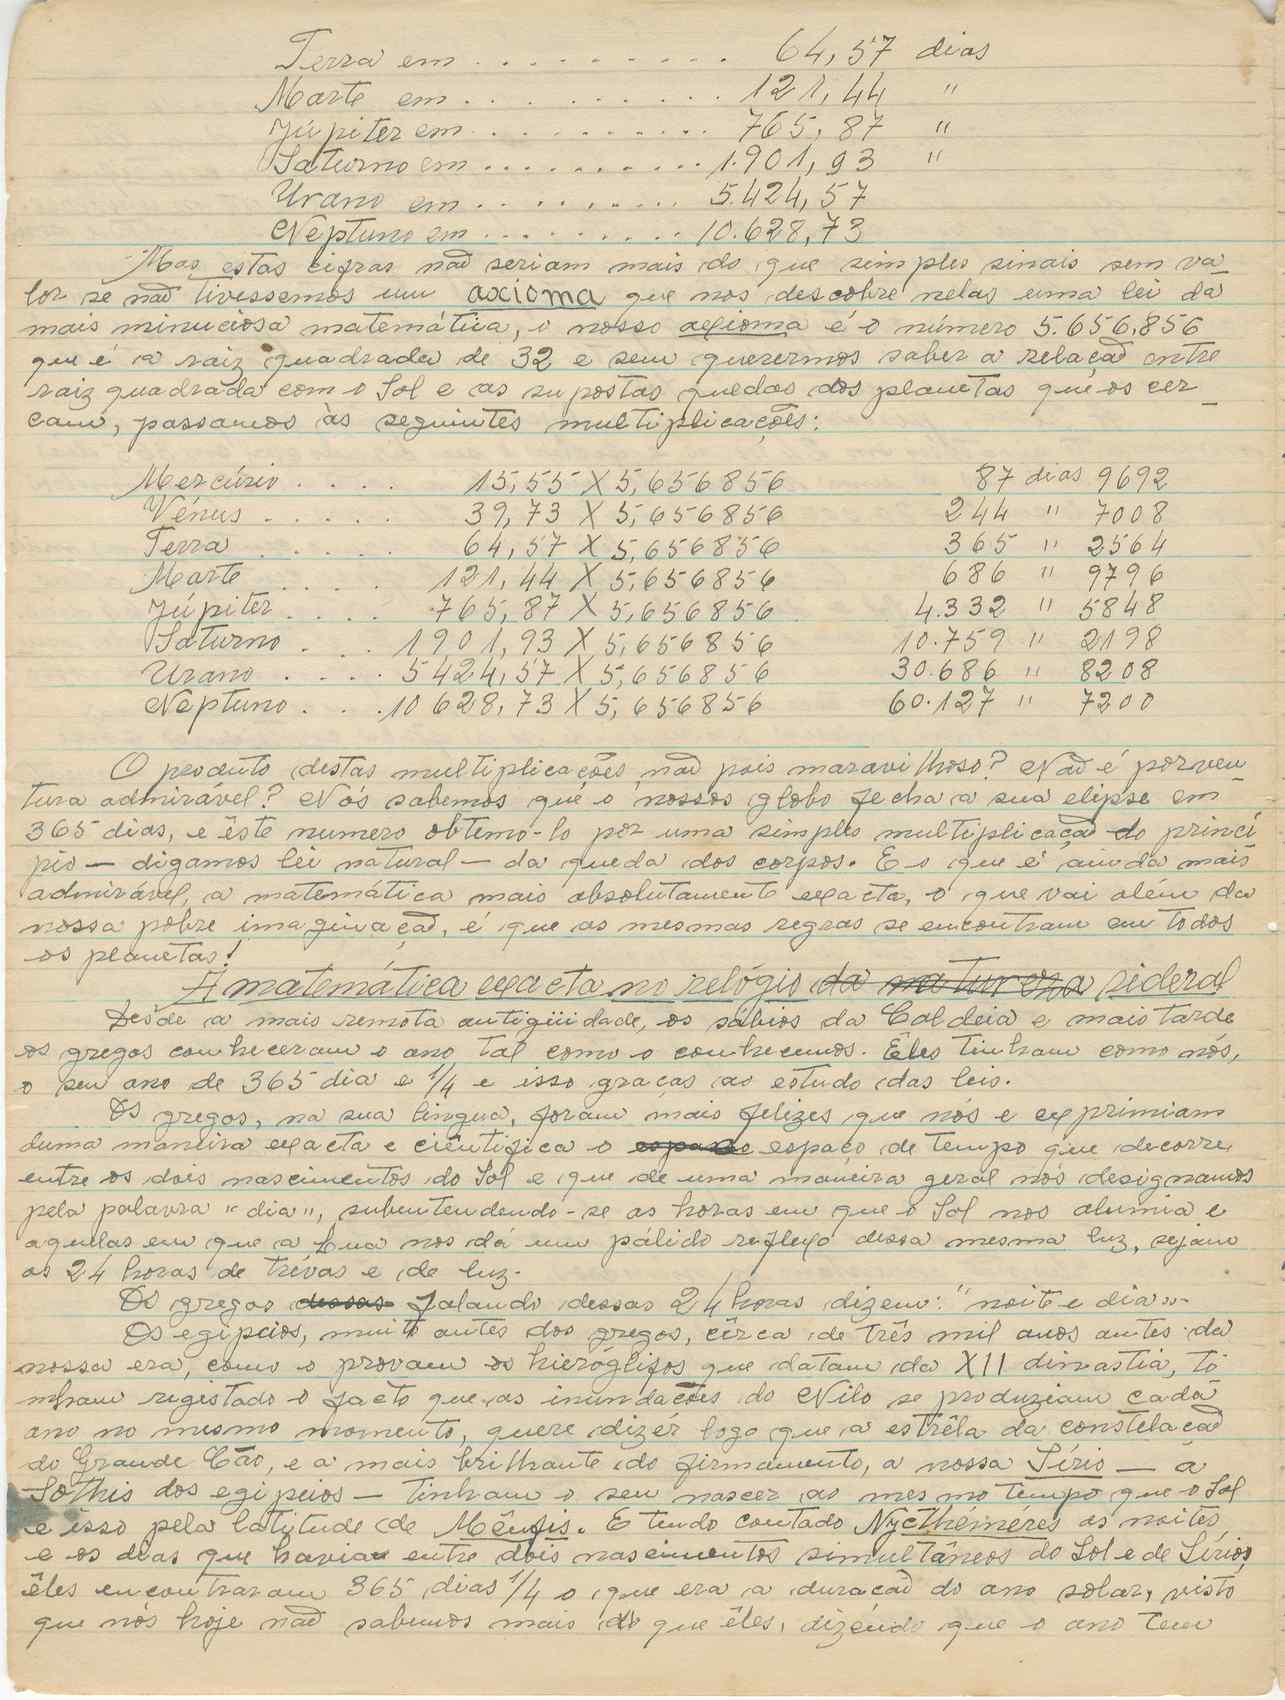 Terra em . . . . . . . . . . 64,57 dias
Marte em . . . . . . . . . . 121,44 "
Júpiter em . . . . . . . . . . 765,87 "
Saturno em . . . . . . . . . . 1.901,93 "
Urano em . . . . . . . . . . 5.424,57
Neptuno em . . . . . . . . . 10.628,73
Mas estas cifras não seriam mais do que simples sinais sem va_
lor se não tivessemos um axioma que nos descobre nelas uma lei da
mais minuciosa matemática, o nosso axioma é o número 5.656,856
que é a raiz quadrada de 32 e sem querermos saber a relação entre
raiz quadrada com o Sol e as supostas quedas dos planetas que os cer_
cam, passamos às seguintes multiplicações:
Mercúrio . . . . 15,55 X 5,656856 87 dias 9692
Vénus . . . . . 39,73 X 5,656856 244 " 7008
Terra . . . . . 64,57 X 5,656856 365 " 2564
Marte . . . . 121,44 X 5,656856 686 " 9796
Júpiter . . . . 765,87 X 5,656856 4.332 " 5848
Saturno . . . 1901,93 X 5,656856 10.759 " 2198
Urano . . . . 5424,57 X 5,656856 30.686 " 8208
Neptuno . . . 10628,73 X 5,656856 60.127 " 7200
O produto destas multiplicações não pois maravilhoso? Não é porven_
tura admirável? Nós sabemos que o nossos globo fecha a sua elipse em
365 dias, e êste numero obtemo-lo por uma simples multiplicação do princí
pio — digamos lei natural — da queda dos corpos. E o que é ainda mais
admirável, a matemática mais absolutamente exacta, o que vai além da
nossa pobre imaginação, é que as mesmas regras se encontram em todos
os planetas!
A matemática exacta no relógio da natureza sideral
Desde a mais remota antigüidade, os sábios da Caldeia e mais tarde
os gregos conheceram o ano tal como o conhecemos. Êles tinham como nós,
o seu ano de 365 dia e 1/4 e isso graças ao estudo das leis.
Os gregos, na sua lingua, foram mais felizes que nós e exprimiam
duma maneira exacta e ciêntifica o espaço de tempo que decorre
entre os dois nascimentos do Sol e que de uma maneira geral nós designamos
pela palavra "dia", subentendendo-se as horas em que o Sol nos alumia e
aquelas em que a Lua nos dá um pálido reflexo dessa mesma luz, sejam
as 24 horas de trévas e de luz.
Os gregos dessas falando dessas 24 horas dizem: "noite e dia".
Os egipcios, muito antes dos gregos, cêrca de três mil anos antes da
nossa era, como o provam os hieróglifos que datam da XII dinastia, ti
nham registado o facto que as inundações do Nilo se produziam cada
ano no mesmo momento, quere dizér logo que a estrêla da constelação
do Grande Cão, e a mais brilhante do firmamento, a nossa Sírio — a
Sothis dos egipcios — tinham o seu nascer ao mesmo tempo que o Sol
e isso pela latitude de Mênfis. E tendo contado Nycthéméres as noites
e os dias que haviam entre dois nascimentos simultâneos do Sol e de Sírios,
êles encontraram 365 dias 1/4 o que era a duração do ano solar, visto
que nós hoje não sabemos mais do que êles, dizéndo que o ano tem